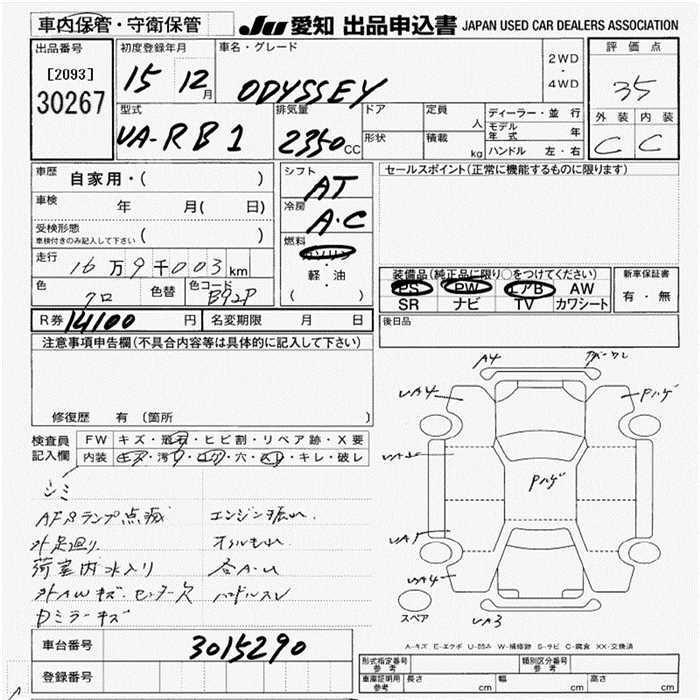 車内保管・守衛保管
JU 愛知 出品申込書 JAPAN USED CAR DEALERS ASSOCIATION
出品番号
[2093]
30267
初度登録年月
15 12月
車名・グレード
ODYSSEY
2WD
・
4WD
評価点
35
外装 内装
C C
型式
UA-RB1
排気量
2350cc
ドア
形状
定員 人
積載 kg
ディーラー・並行
モデル年式 年
ハンドル 左・右
車歴 自家用・( )
車検 年 月( 日)
受検形態
車検付きのみ記入して下さい ( )
走行 16万9千003km
色 クロ
色替
色コード B92P
シフト
AT
冷房
A・C
燃料
ガソリン
・
軽・油
( )
セールスポイント(正常に機能するものに限ります)
装備品(純正品に限り○をつけてください)
PS PW エアB AW
SR ナビ TV カワシート
新車保証書
有・無
R券 14100円
名変期限 月 日
後日品
注意事項申告欄(不具合内容等は具体的に記入して下さい)
修復歴 有 (箇所 )
検査員
記入欄
FW キズ・飛石・ヒビ割・リペア跡・X要
内装 キズ・汚レ・コゲ・穴・スレ・キレ・破レ
シミ
エンジン振れ
外足廻り
オイルもれ
荷室内水入り
各A・U
外AWキズ・センター欠
ハンドルスレ
Dミラーキズ
A4
UA4
Pハゲ
Pハゲ
UA4
UA3
スペア
A-キズ E-エクボ U-凹み W-補修跡 S-サビ C-腐食 XX-交換済
車台番号 3015290
登録番号
形式指定番号
参考
類別区分番号
参考
車庫証明用
参考
長さ cm
幅 cm
高さ cm